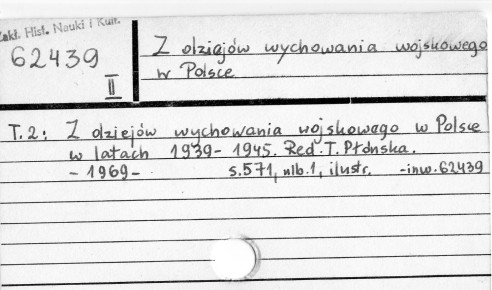 Zakł. Hist. Nauki i Kult.
62439
II
Z dziejów wychowania wojskowego
w Polsce
T.2: Z dziejów wychowania wojskowego w Polsce
w latach 1939-1945. Red. T. Płonska.
- 1969 - s.571, nlb.1, ilustr. -inw.62439